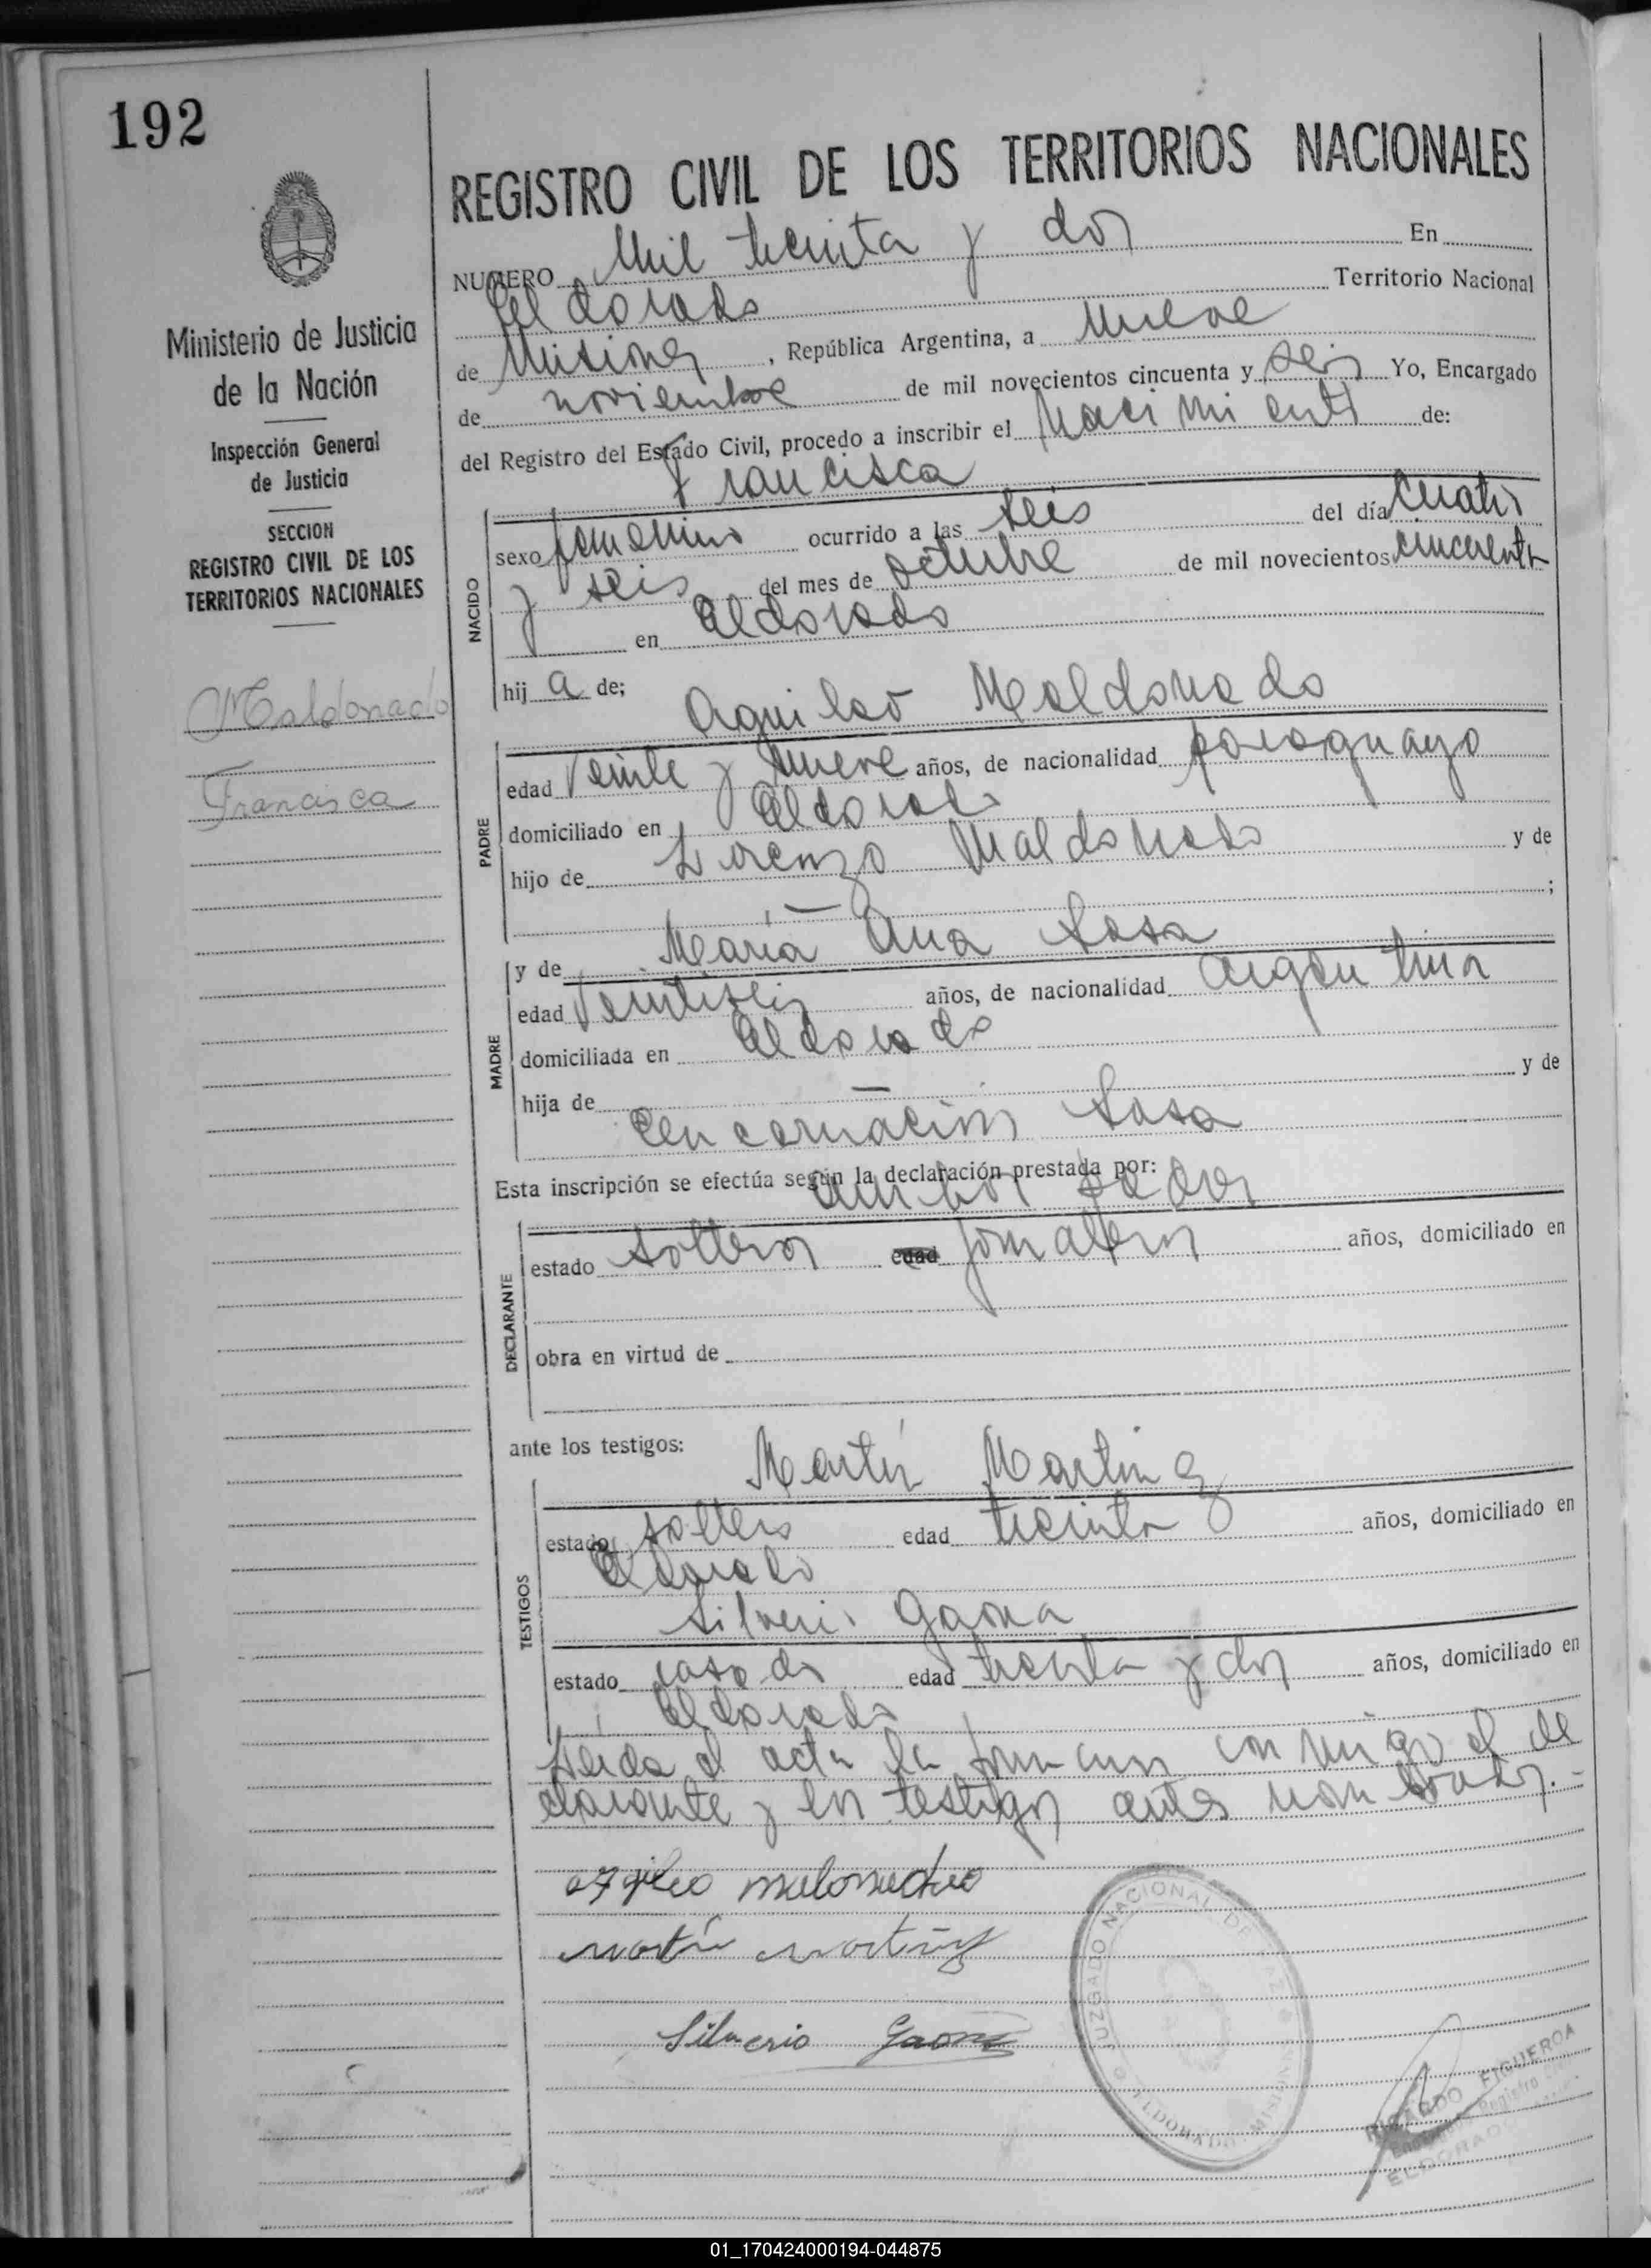 192
REGISTRO CIVIL DE LOS TERRITORIOS NACIONALES
NUMERO Mil treinta y dos En
Eldorado Territorio Nacional
de Misiones, República Argentina, a nueve
de noviembre de mil novecientos cincuenta y seis Yo, Encargado
del Registro del Estado Civil, procedo a inscribir el Nacimiento de:
Francisca
Ministerio de Justicia
de la Nación
Inspección General
de Justicia
SECCION
REGISTRO CIVIL DE LOS
TERRITORIOS NACIONALES
Maldonado
Francisca
NACIDO
sexo femenino ocurrido a las seis del día cuatro
del mes de octubre de mil novecientos cincuenta
y seis en Eldorado
hija de; Maldonado
PADRE
edad veinte y nueve años, de nacionalidad paraguayo
domiciliado en Eldorado
hijo de Lorenzo Maldonado y de
— ;
y de María Ana Sosa
MADRE
edad veintiseis años, de nacionalidad argentina
domiciliada en Eldorado
hija de — y de
Encarnación Sosa
Esta inscripción se efectúa según la declaración prestada por:
ambos
DECLARANTE
estado solteros edad jornaleros años, domiciliado en
obra en virtud de
ante los testigos: Martín Martinez
TESTIGOS
estado soltero edad treinta años, domiciliado en
Eldorado
Silverio Gaona
estado casado edad treinta y dos años, domiciliado en
Eldorado
Leída el acta la firman conmigo el de
clarante y los testigos antes nombrados.-
martín martinez
Silverio Gaona
JUZGADO NACIONAL DE PAZ
ELDORADO - MISIONES
RICARDO FIGUEROA
Encargado Registro
ELDORADO
01_170424000194-044875